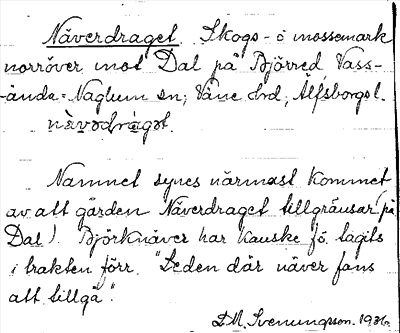 Näverdraget. Skogs- o mossemark
norröver mot Dal på Björred Vass-
ända-Naglum sn; Väne hrd; Älfsborgs l.
nä̀vədràgət.
Namnet synes närmast kommet
av att gården Näverdraget tillgränsar (på
Dal). Björknäver har kanske fö. tagits
i trakten förr. "Leden där näver fans
att tillgå".
D. M. Svenungsson. 1936.